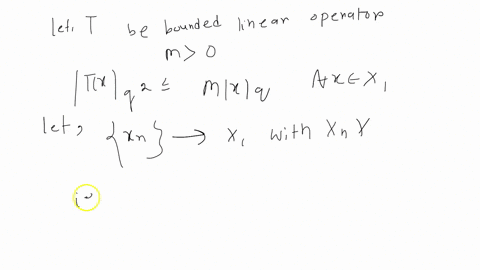 let, T be bounded linear operator
m > 0
|T(x)|q2 ≤ m|x|q ∀x ∈ X1
let, {xn} → X, with Xn Y
i2